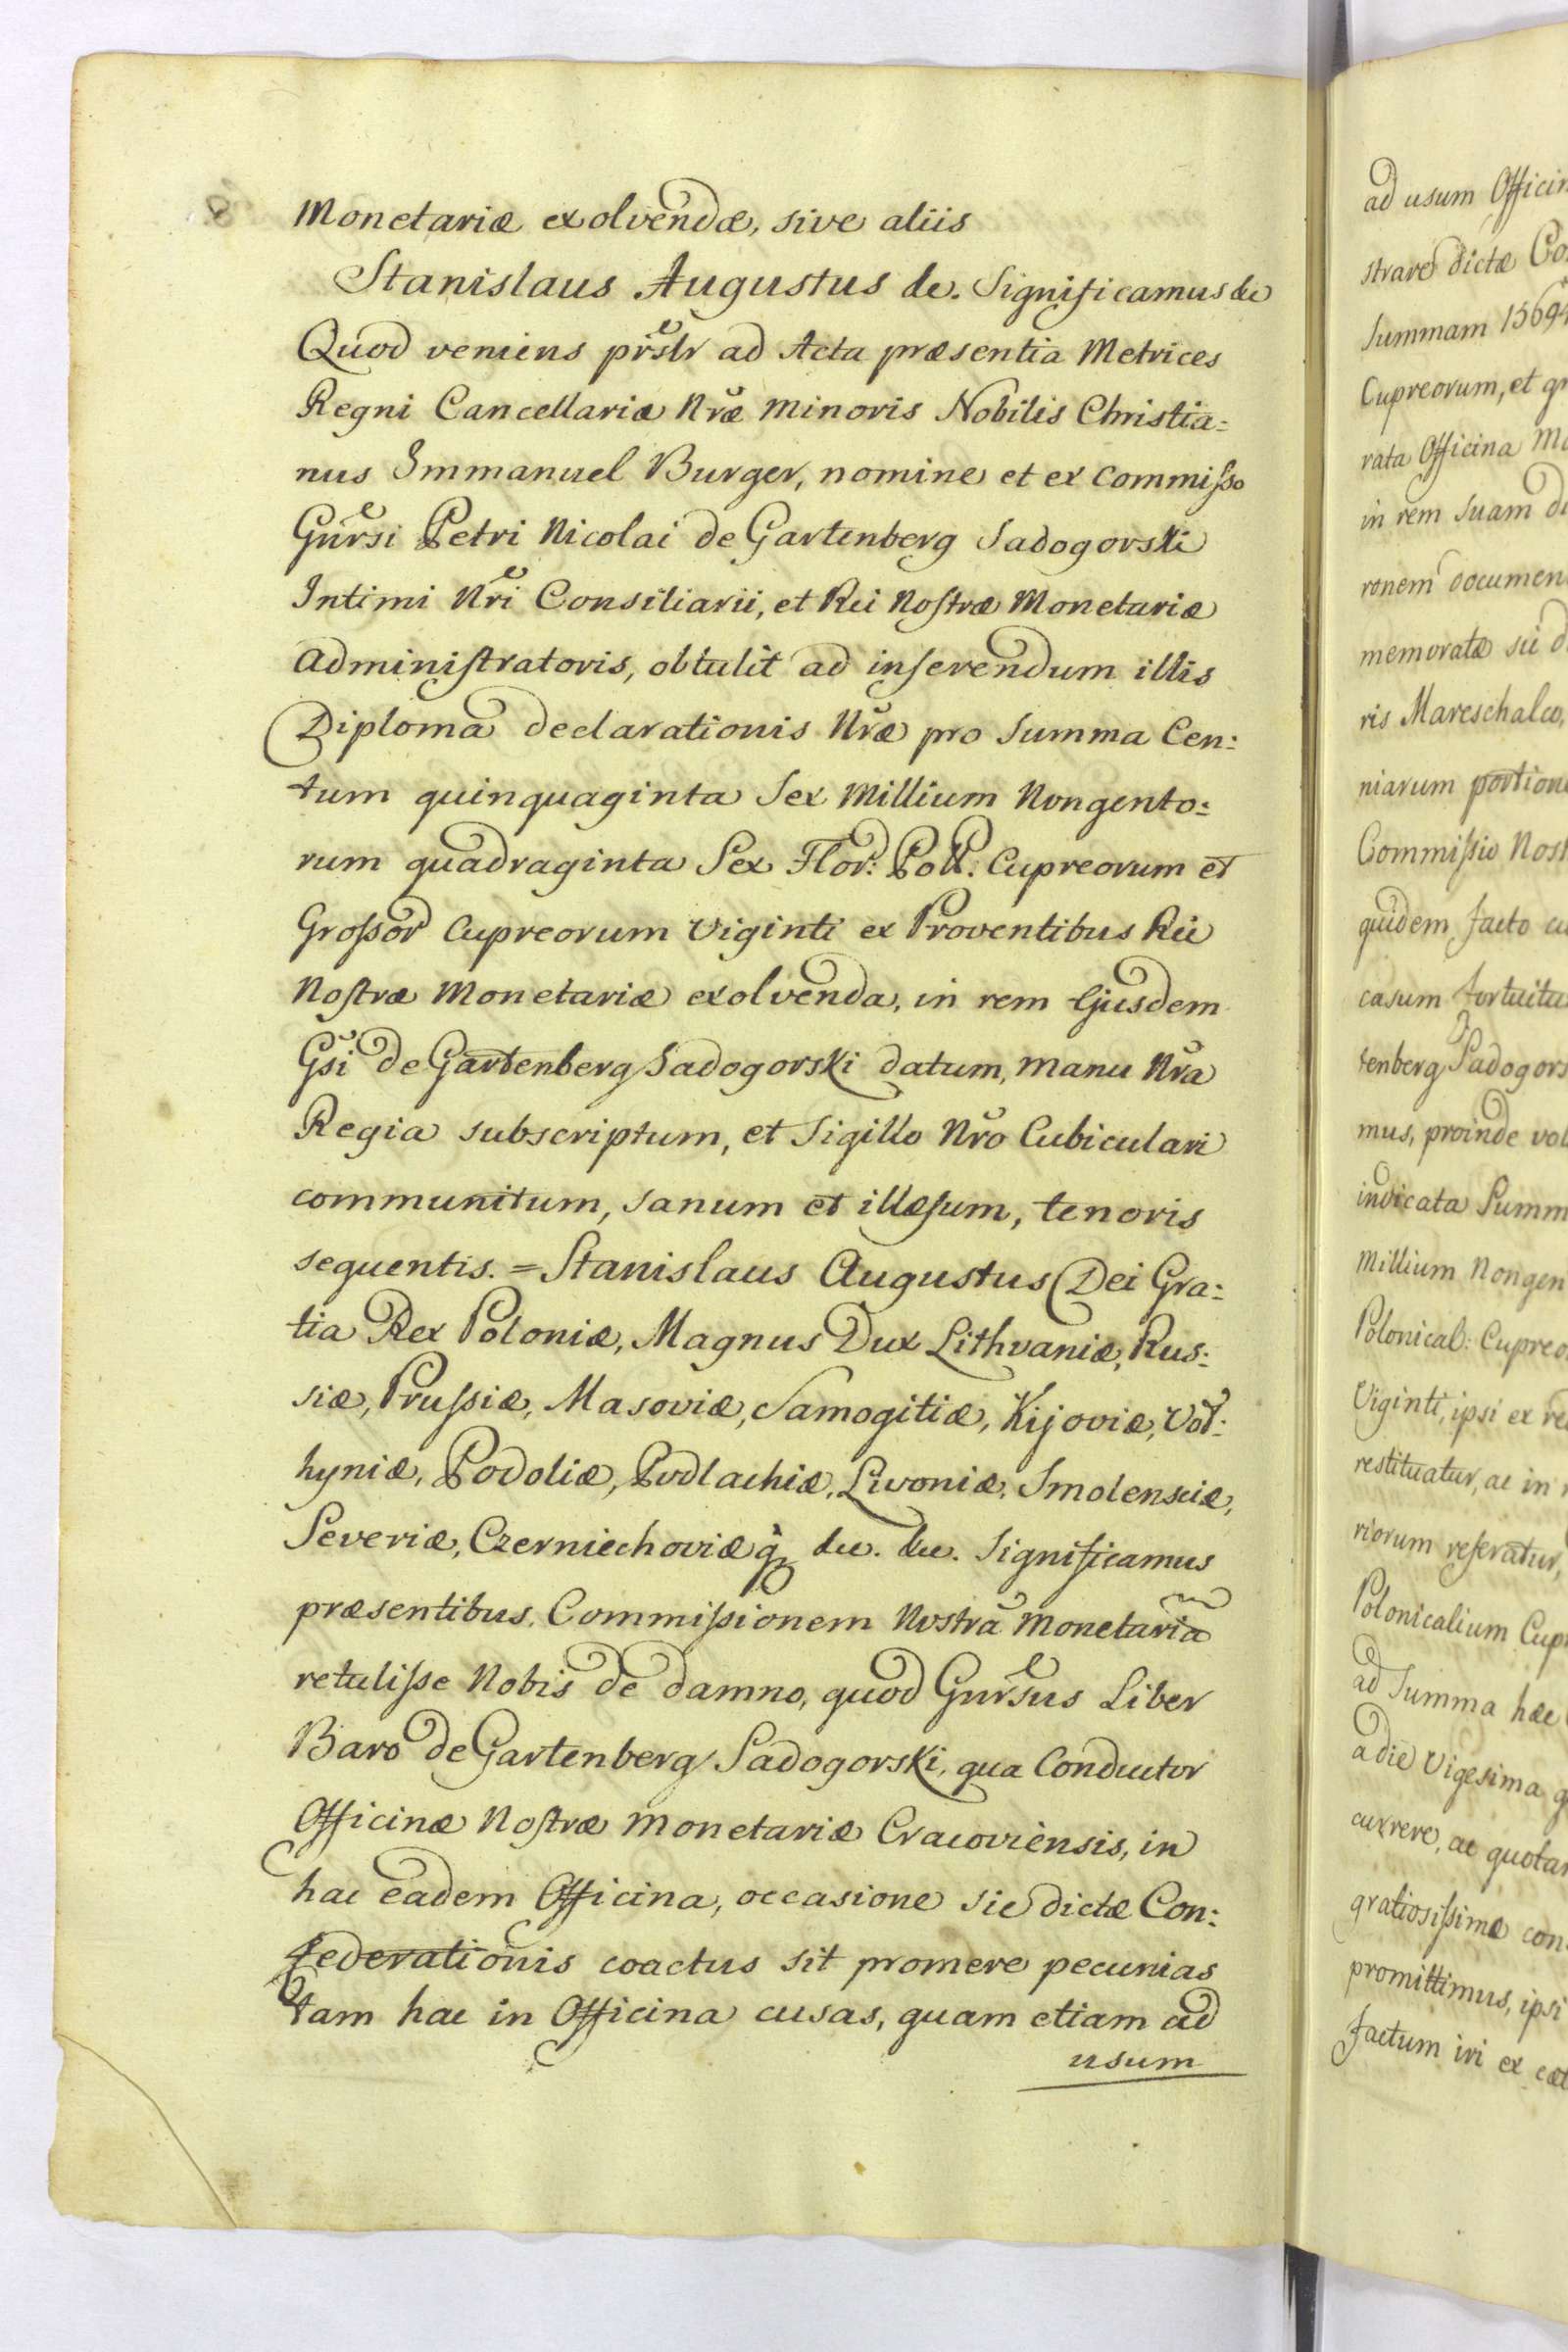 Monetariæ exolvendæ, sive aliis
Stanislaus Augustus &c. Significamus &c
Quod veniens prſstr ad Acta præsentia Metrices
Regni Cancellariæ Nræ minoris Nobilis Christia=
nus Immanuel Burger, nomine et ex commiſso
Gnrsi Petri Nicolai de Gartenberg Sadogorski
Intimi Nri Consiliarii, et Rei Noſtræ Monetariæ
Adminiſtratoris, obtulit ad inſerendum illis
Diploma declarationis Nræ pro Summa Cen=
tum quinquaginta Sex Millium Nongento=
rum quadraginta Sex Flor: Poll: Cupreorum et
Groſsor Cupreorum Viginti ex Proventibus Rei
Noſtræ Monetariæ exolvenda, in rem Ejusdem
Gsi de Gartenberg Sadogorski datum, manu Nra
Regia subscriptum, et Sigillo Nro Cubiculari
communitum, sanum et illæſum, tenoris
sequentis. = Stanislaus Augustus Dei Gra=
tia Rex Poloniæ, Magnus Dux Lithvaniæ, Rus=
siæ, Pruſsiæ, Masoviæ, Samogitiæ, Kijoviæ, Vol=
hyniæ, Podoliæ, Podlachiæ, Livoniæ, Smolensciæ,
Severiæ, Czerniechoviæq; &c. &c. Significamus
præsentibus. Commiſsionem Nostrā Monetariā
retuliſse Nobis de damno, quod Gnrsus Liber
Baro de Gartenberg Sadogorski, qua Conductor
Officinæ Noſtræ Monetariæ Cracoviensis, in
hac eadem Officina, occasione sic dictæ Con=
federationis coactus sit promere pecunias
tam hac in Officina cusas, quam etiam ad
usum
ad usum
strare dictæ
Summam
Cupreorum, et
rata Officina
in rem suam
ronem
memoratæ sii
ris Mareschalco,
niarum
Commiſsio
quidem facto
casum
tenberg
mus, proinde
indicata
Millium
Polonical: 
Viginti, ipsi ex
restituatur, ac in
riorum referatur,
Polonicalium
ad Summa hæc
a die Vigesima
currere, ac
gratiosiſsime
promittimus, ipsi
factum iri ex